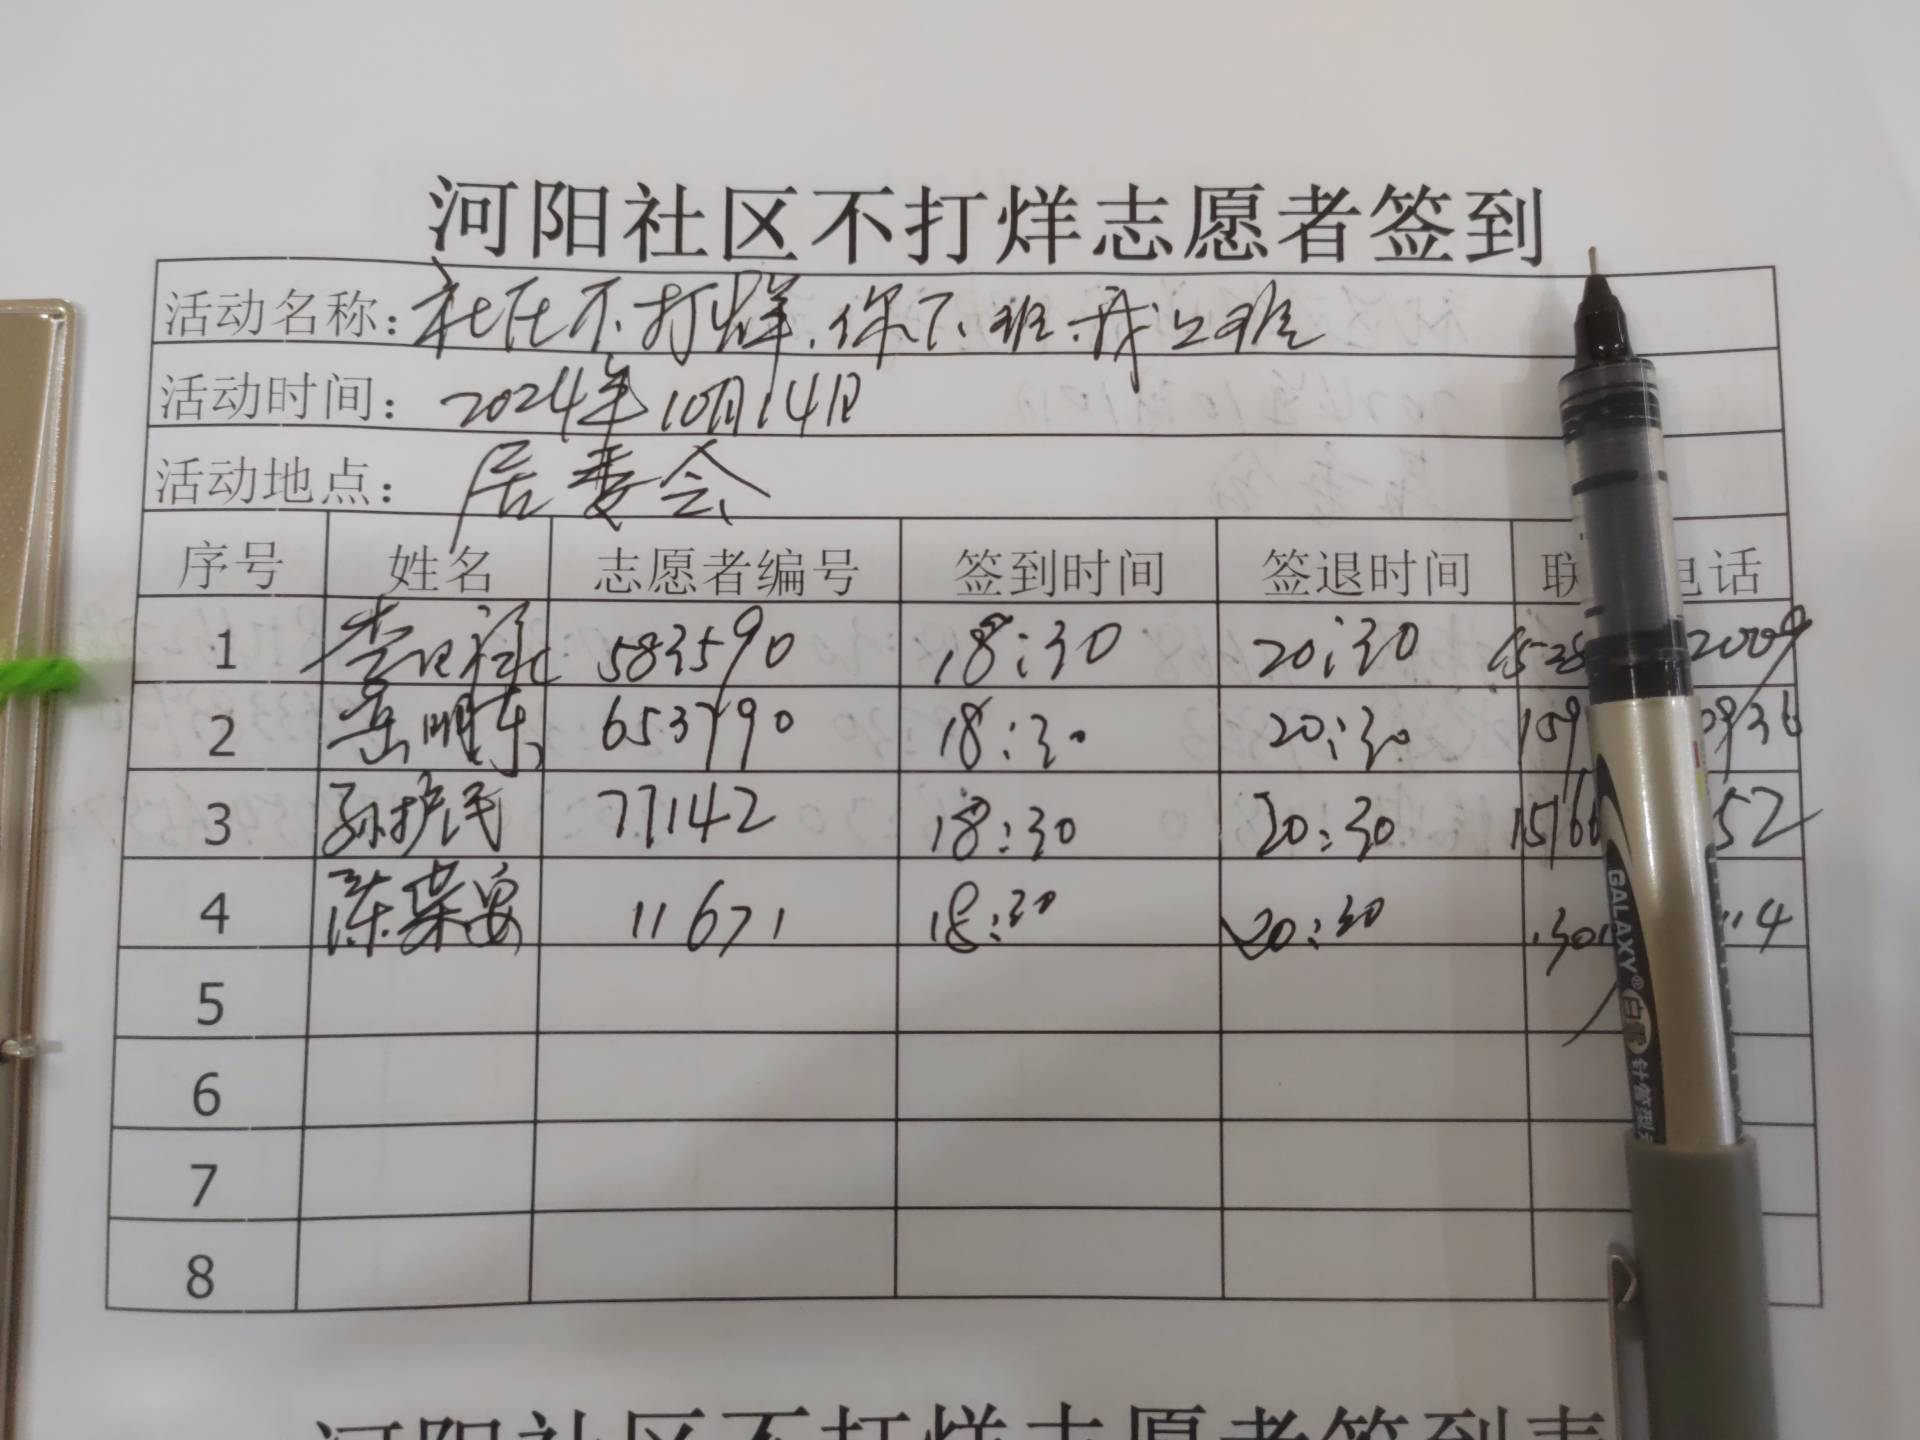 河阳社区不打烊志愿者签到
活动名称：社区不打烊、你下班我上班
活动时间：2024年10月14日
活动地点：居委会
序号 姓名 志愿者编号 签到时间 签退时间 联 电话
1 583590 18:30 20:30 1528 2009
2 岳明东 653790 18:30 20:30 159 0936
3 孙护民 77142 18:30 20:30 1516 52
4 陈荣安 11671 18:30 20:30 130 114
5
6
7
8
GALAXY® 白雪 针管型
河阳社区不打烊志愿者签到表